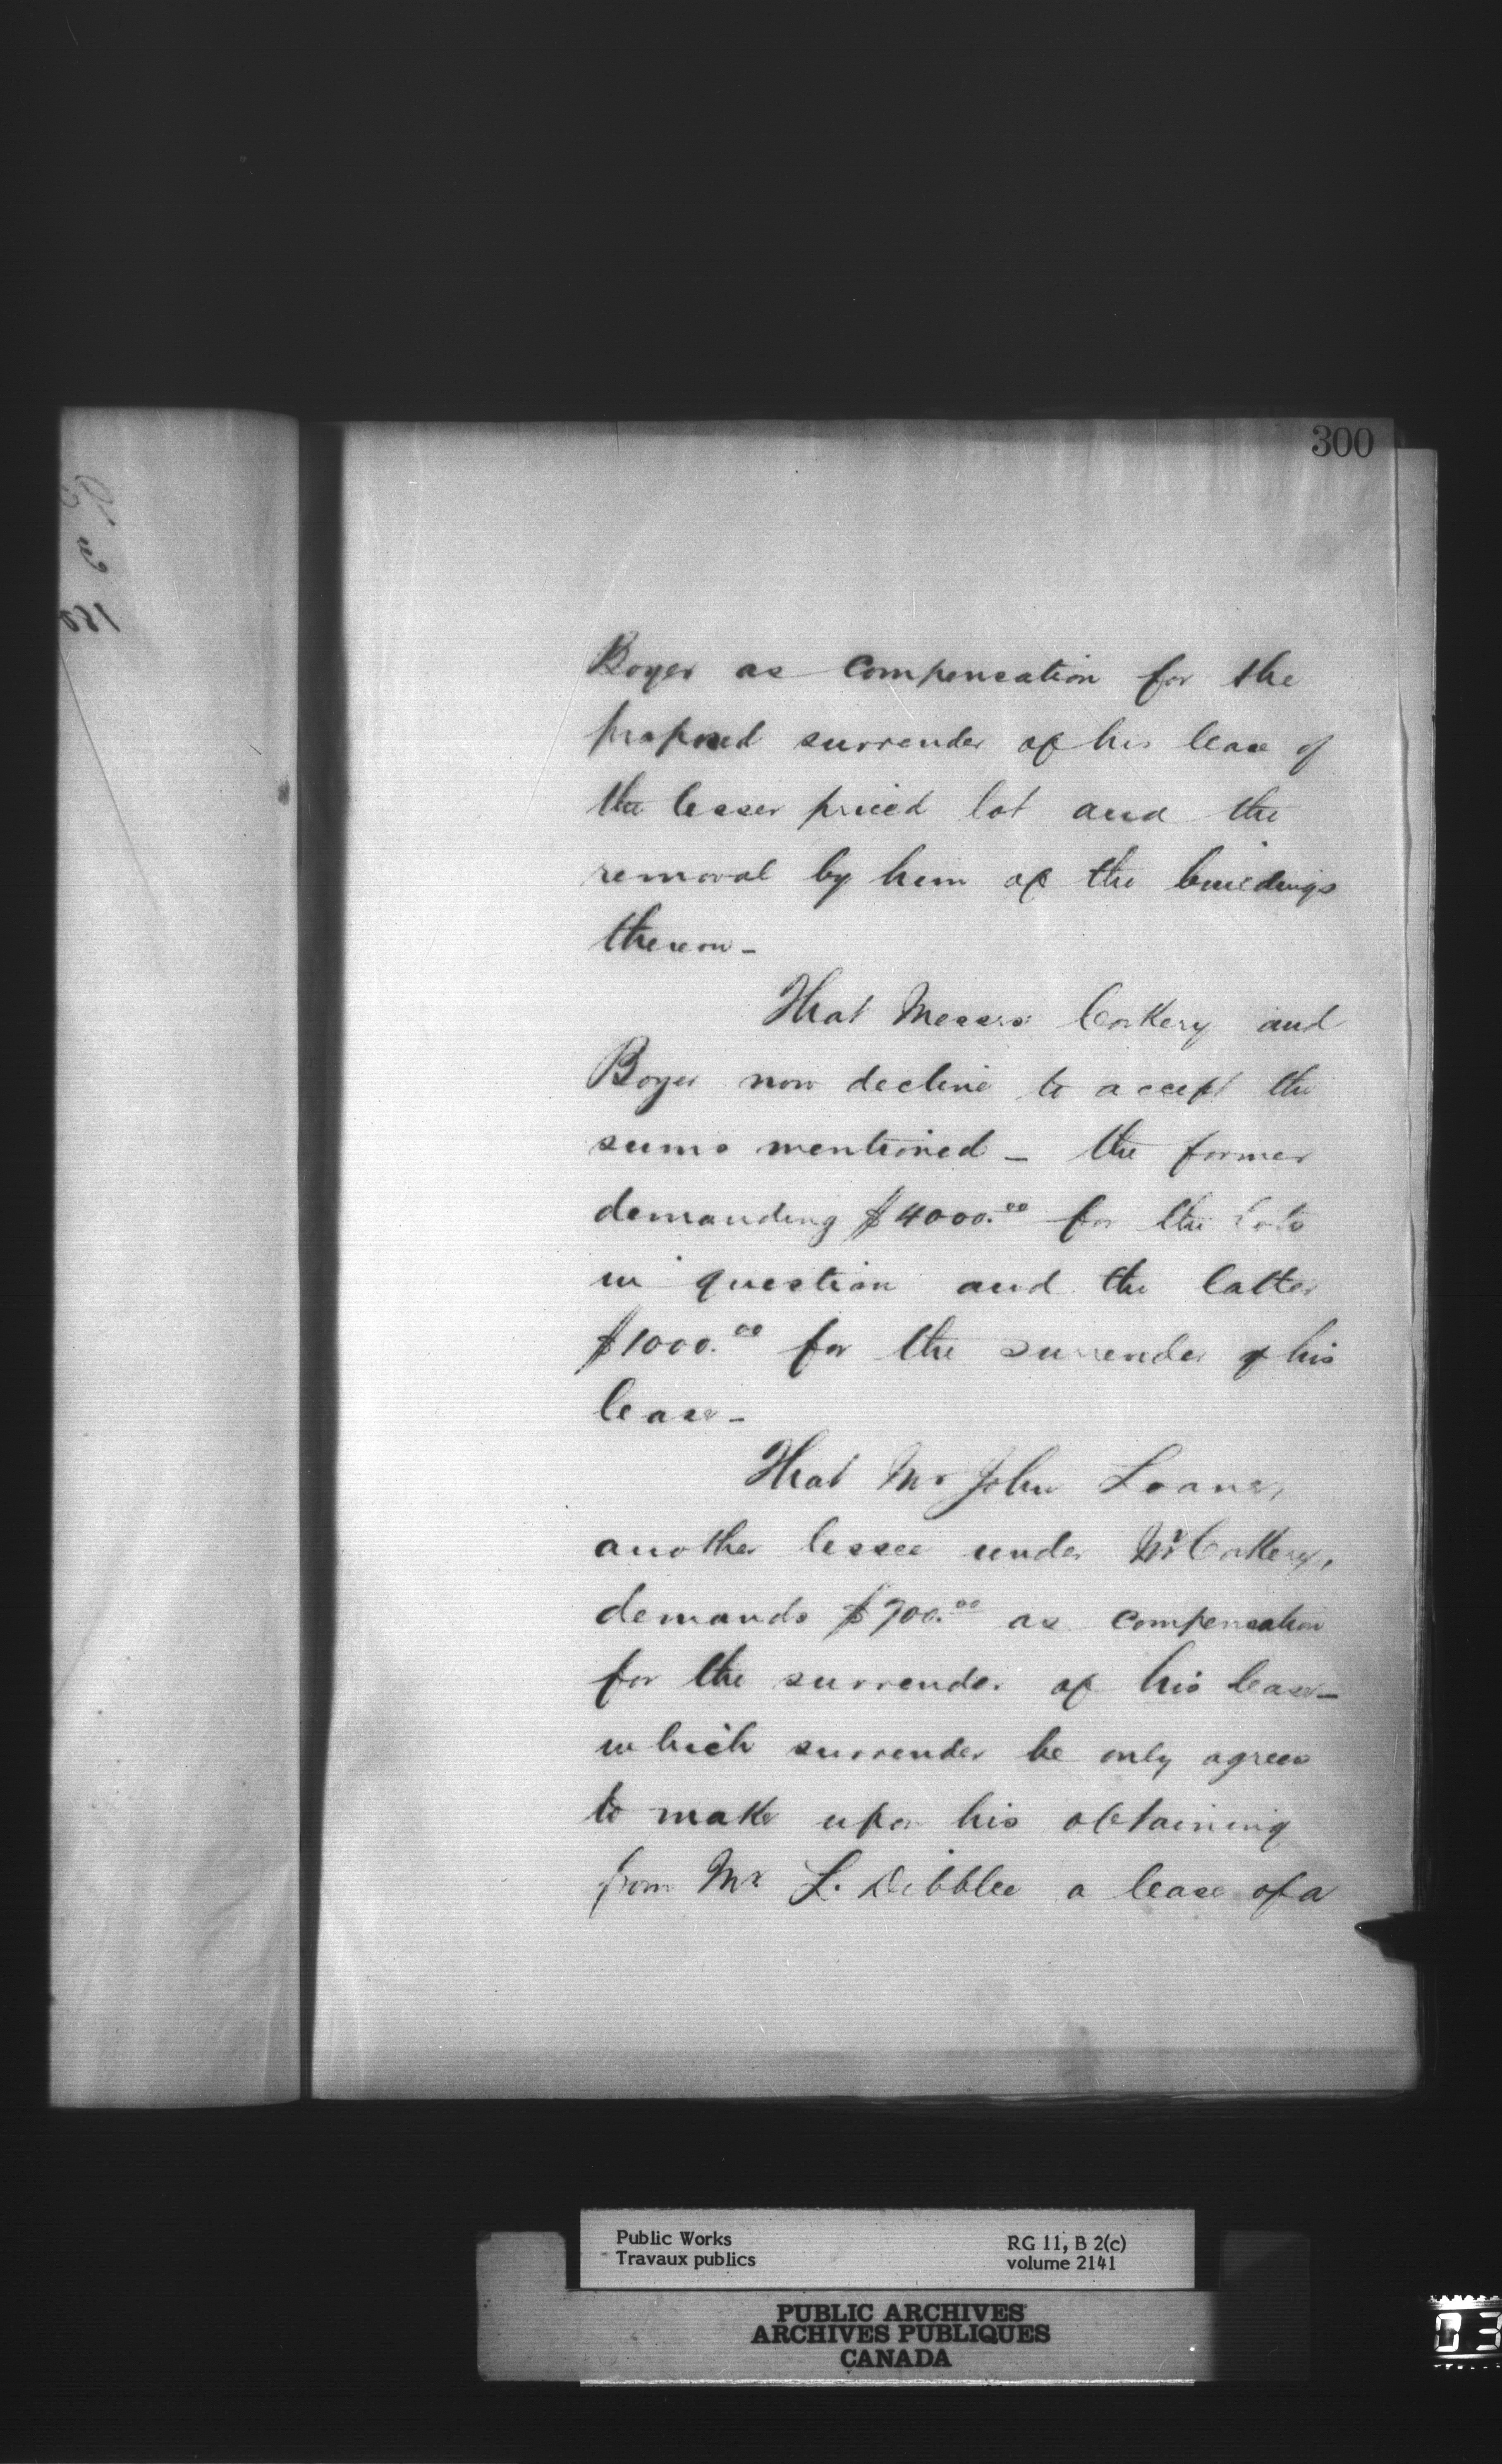 300
Boyer as compensation for the
proposed surrender of his lease of
the lesser priced lot and the
removal by him of the buildings
thereon -
That Messrs Corkery and
Boyer now decline to accept the
sums mentioned - the former
demanding $4000.00 for the lots
in question and the latter
$1000.00 for the surrender of his
lease -
That Mr John Loane,
another lessee under Mr Corkery,
demands $700.00 as compensation
for the surrender of his lease -
which surrender he only agrees
to make upon his obtaining
from Mr L. Dibblee a lease of a
Public Works
Travaux publics
RG 11, B 2(c)
volume 2141
PUBLIC ARCHIVES
ARCHIVES PUBLIQUES
CANADA
03